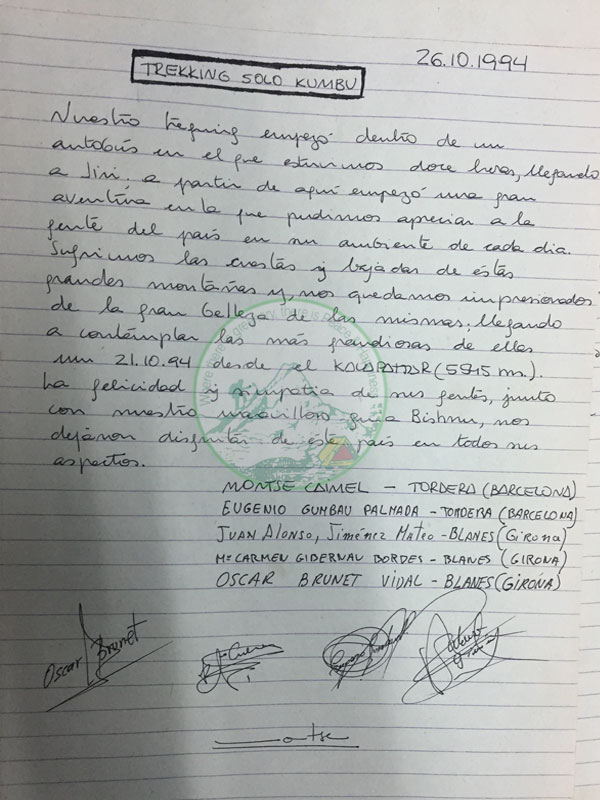 26.10.1994
TREKKING SOLO KUMBU
Nuestro treguing empezó dentro de un
autobús en el que estuvimos doce horas, llegando
a Jiri. a partir de aquí empezó una gran
aventura en la que pudimos apreciar a la
gente del país en su ambiente de cada dia.
Sufrimos las cuestas y bajadas de éstas
grandes montañas y, nos quedamos impresionados
de la gran belleza de las mismas, llegando
a contemplar las más grandiosas de ellas
un 21.10.94 desde el KALAPATTAR (5545 ms.).
La felicidad y simpatia de sus gentes, junto
con nuestro maravilloso guia Bishnu, nos
dejáron disfrutar de este país en todos sus
aspectos.
MONTSE CAIMEL - TORDERA (BARCELONA)
EUGENIO GUMBAU PALMADA - TORDERA (BARCELONA)
JUAN ALONSO, Jiménez Mateo - BLANES (Girona)
Mª CARMEN GIDERNAU BORDES - BLANES (GIRONA)
OSCAR BRUNET VIDAL - BLANES (GIRONA)
Oscar Brunet
Montse